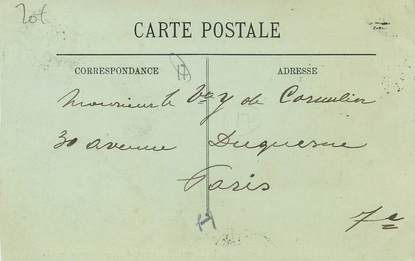 CARTE POSTALE
CORRESPONDANCE
ADRESSE
Monsieur le Vte de Cornulier
30 avenue Duquesne
Paris
7e